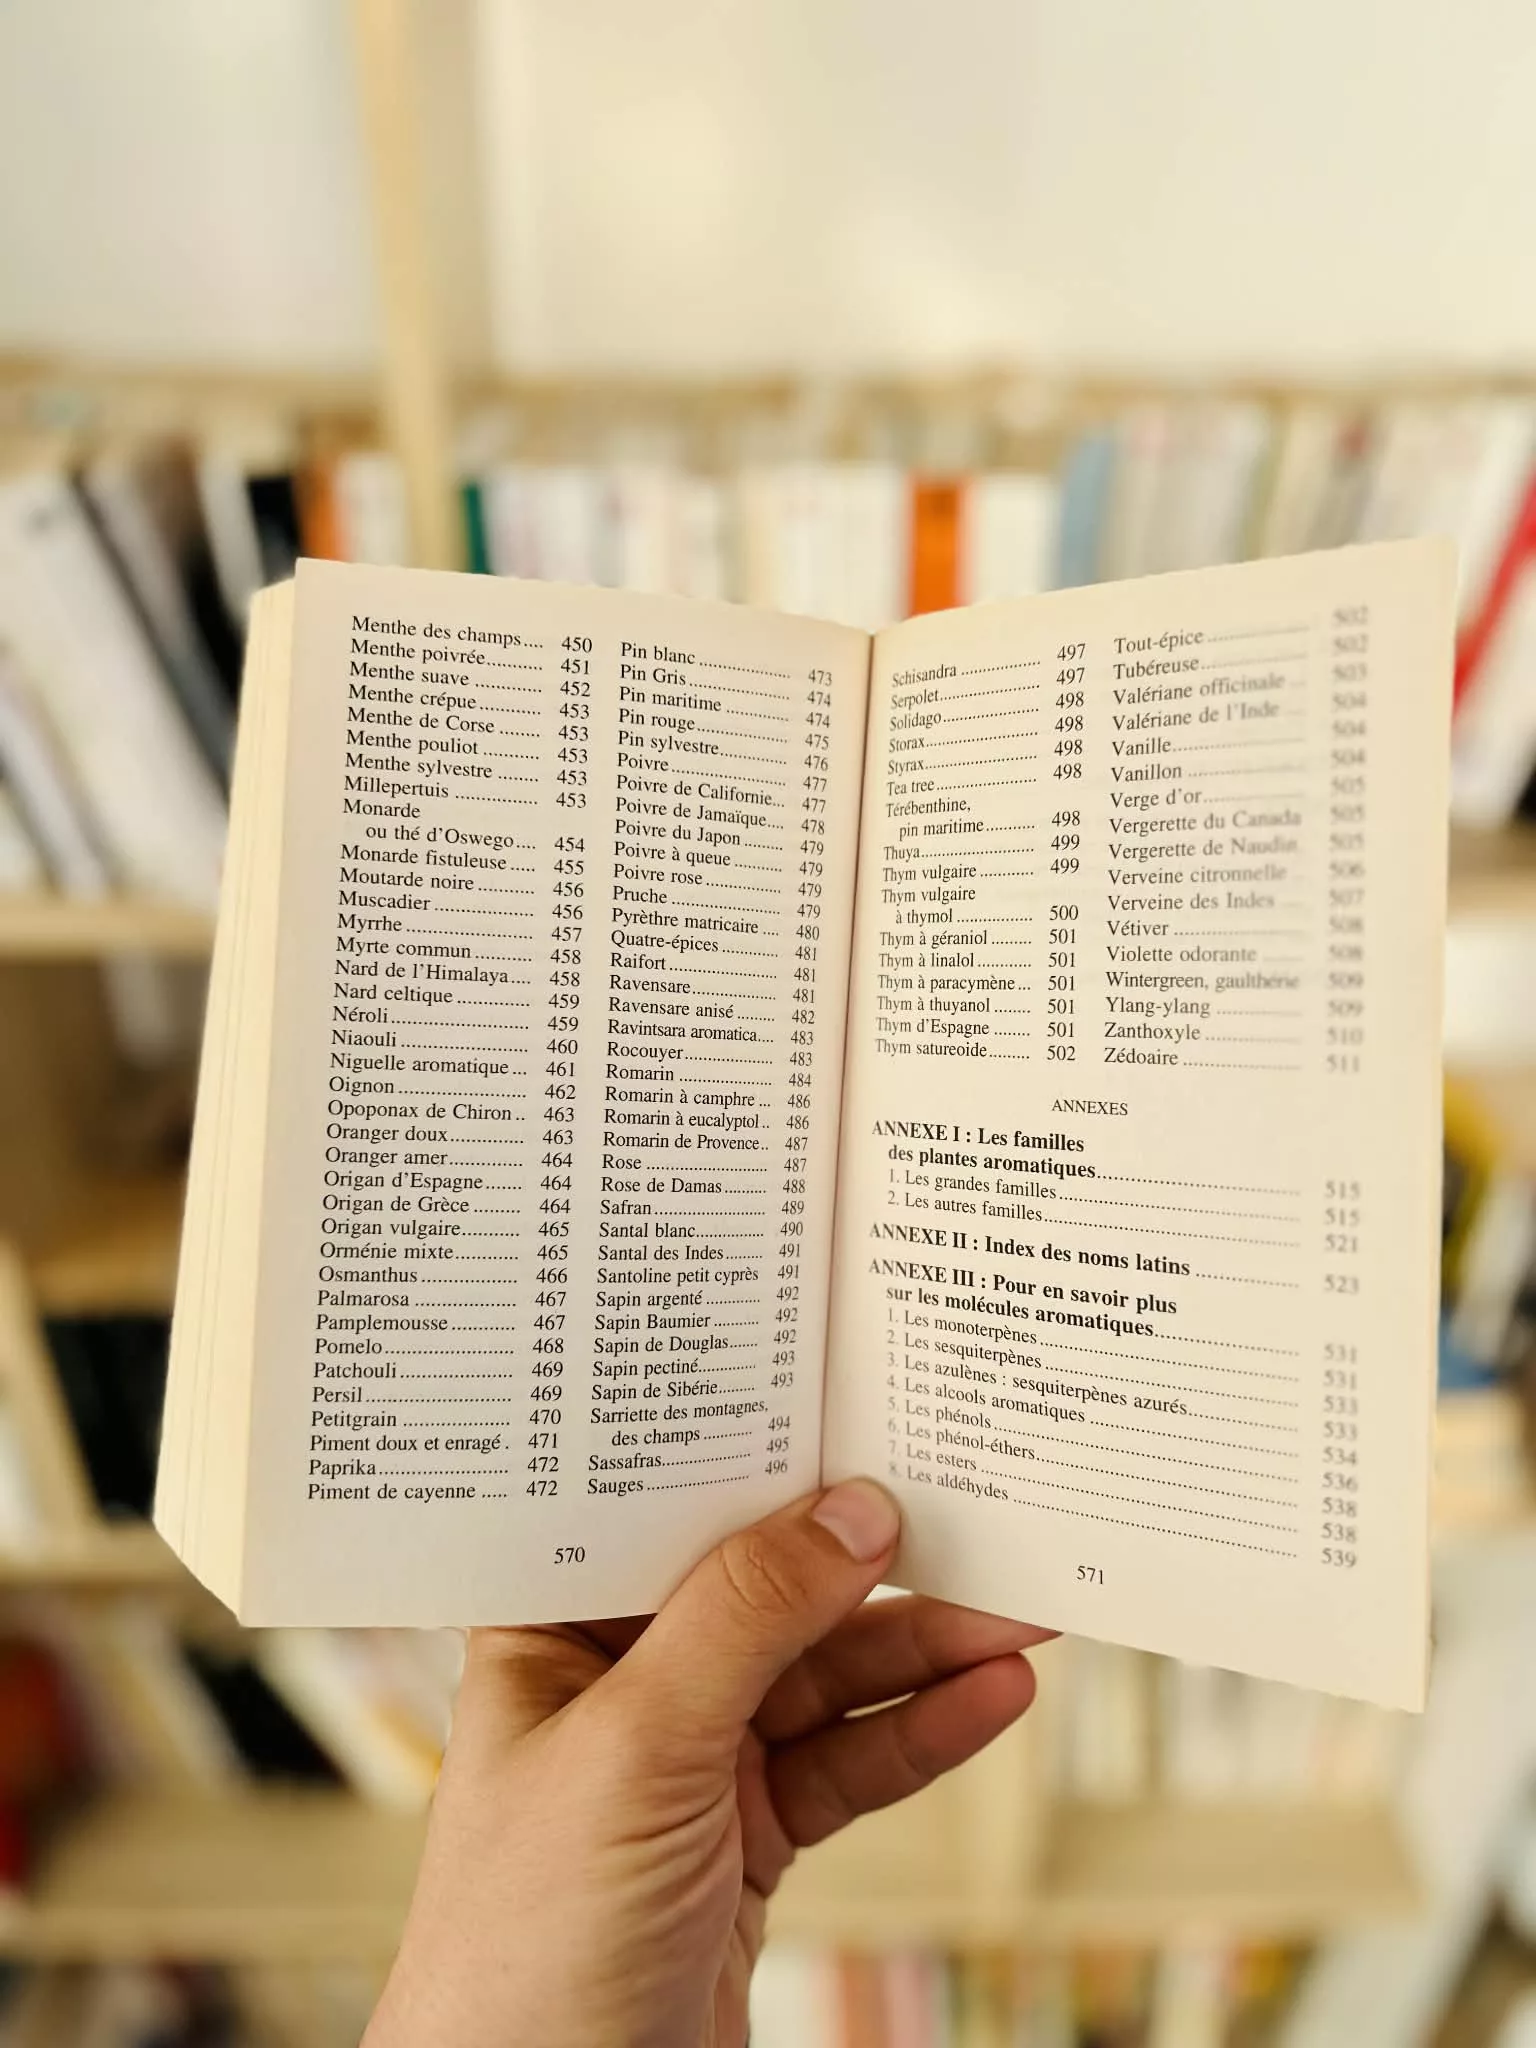 Menthe des champs.... 450
Menthe poivrée........... 451
Menthe suave ............ 452
Menthe crépue........... 453
Menthe de Corse ....... 453
Menthe pouliot .......... 453
Menthe sylvestre ....... 453
Millepertuis ............... 453
Monarde
ou thé d'Oswego.... 454
Monarde fistuleuse ..... 455
Moutarde noire .......... 456
Muscadier .................. 456
Myrrhe ....................... 457
Myrte commun .......... 458
Nard de l'Himalaya.... 458
Nard celtique ............. 459
Néroli......................... 459
Niaouli ....................... 460
Niguelle aromatique ... 461
Oignon ....................... 462
Opoponax de Chiron .. 463
Oranger doux............. 463
Oranger amer............. 464
Origan d'Espagne....... 464
Origan de Grèce ........ 464
Origan vulgaire.......... 465
Orménie mixte........... 465
Osmanthus ................. 466
Palmarosa .................. 467
Pamplemousse ........... 467
Pomelo....................... 468
Patchouli .................... 469
Persil.......................... 469
Petitgrain ................... 470
Piment doux et enragé . 471
Paprika....................... 472
Piment de cayenne ..... 472
Pin blanc .................... 473
Pin Gris ...................... 474
Pin maritime .............. 474
Pin rouge.................... 475
Pin sylvestre............... 476
Poivre......................... 477
Poivre de Californie... 477
Poivre de Jamaïque.... 478
Poivre du Japon ......... 479
Poivre à queue ........... 479
Poivre rose ................. 479
Pruche ........................ 479
Pyrèthre matricaire .... 480
Quatre-épices ............. 481
Raifort ........................ 481
Ravensare................... 481
Ravensare anisé ......... 482
Ravintsara aromatica.... 483
Rocouyer.................... 483
Romarin ..................... 484
Romarin à camphre ... 486
Romarin à eucalyptol.. 486
Romarin de Provence.. 487
Rose ........................... 487
Rose de Damas .......... 488
Safran ......................... 489
Santal blanc................ 490
Santal des Indes ......... 491
Santoline petit cyprès 491
Sapin argenté ............. 492
Sapin Baumier ........... 492
Sapin de Douglas....... 492
Sapin pectiné.............. 493
Sapin de Sibérie......... 493
Sarriette des montagnes,
des champs ............ 494
Sassafras..................... 495
Sauges ........................ 496
570
Schisandra .................. 497
Serpolet....................... 497
Solidago...................... 498
Storax.......................... 498
Styrax.......................... 498
Tea tree....................... 498
Térébenthine,
pin maritime ........... 498
Thuya.......................... 499
Thym vulgaire ............ 499
Thym vulgaire
à thymol ................. 500
Thym à géraniol ......... 501
Thym à linalol ............ 501
Thym à paracymène ... 501
Thym à thuyanol ........ 501
Thym d'Espagne ........ 501
Thym satureoide......... 502
Tout-épice .................. 502
Tubéreuse................... 502
Valériane officinale .. 503
Valériane de l'Inde ... 504
Vanille........................ 504
Vanillon ..................... 504
Verge d'or.................. 505
Vergerette du Canada 505
Vergerette de Naudin. 505
Verveine citronnelle .. 506
Verveine des Indes .... 507
Vétiver ....................... 508
Violette odorante ....... 508
Wintergreen, gaulthérie 509
Ylang-ylang ............... 509
Zanthoxyle ................. 510
Zédoaire ..................... 511
ANNEXES
ANNEXE I : Les familles
des plantes aromatiques................................... 515
1. Les grandes familles ........................................ 515
2. Les autres familles........................................... 521
ANNEXE II : Index des noms latins ................. 523
ANNEXE III : Pour en savoir plus
sur les molécules aromatiques........................ 531
1. Les monoterpènes ........................................... 531
2. Les sesquiterpènes .......................................... 533
3. Les azulènes : sesquiterpènes azurés................. 533
4. Les alcools aromatiques .................................. 534
5. Les phénols ..................................................... 536
6. Les phénol-éthers............................................ 538
7. Les esters ........................................................ 538
8. Les aldéhydes .................................................. 539
571